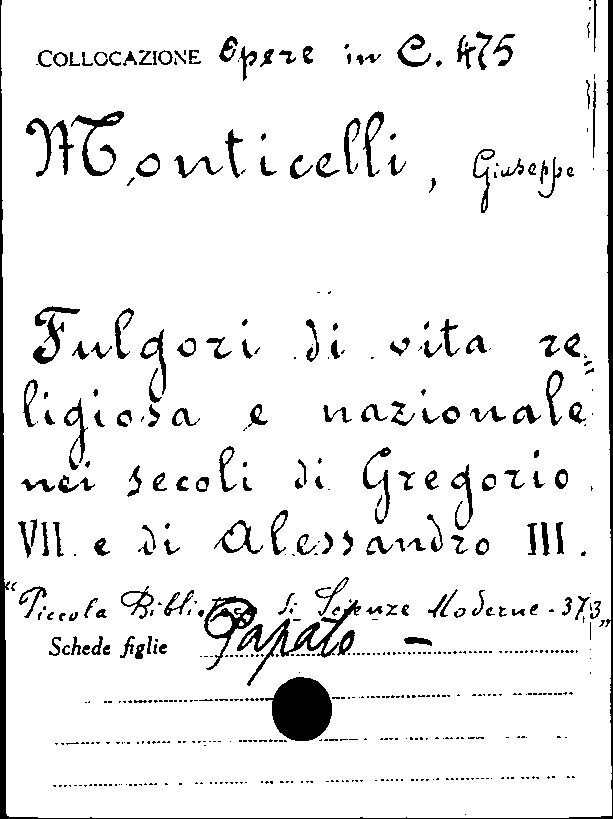 COLLOCAZIONE Opere in C. 475
Monticelli, Giuseppe
Fulgori di vita re=
ligiosa e nazionale
nei secoli di Gregorio
VII e di Alessandro III.
"Piccola Biblioteca di Scienze Moderne - 373"
Schede figlie Papato -